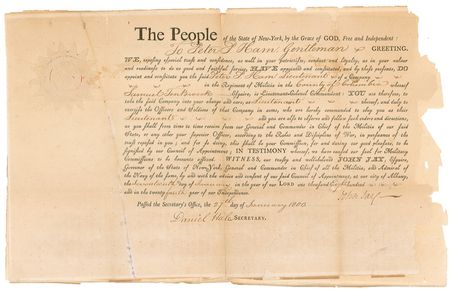 The People of the State of New-York, by the Grace of GOD, Free and Independent:
To Peter Ham Gentleman GREETING.
WE, reposing especial trust and confidence, as well in your patriotism, conduct and loyalty, as in your valour
and readiness to do us good and faithful service, HAVE appointed and constituted, and by these presents, DO
appoint and constitute you the said Peter Ham Lieutenant of a Company
in the Regiment of Militia in the County of Columbia whereof
Samuel Ten Broeck Esquire, is Lieutenant-Colonel Commandant: YOU are therefore, to
take the said Company into your charge and care, as Lieutenant thereof, and duly to
exercise the Officers and Soldiers of that Company in arms, who are hereby commanded to obey you as their
Lieutenant and you are also to observe and follow such orders and directions,
as you shall from time to time receive from our General and Commander in Chief of the Militia of our said
State, or any other your Superior Officer, according to the Rules and Discipline of War, in pursuance of the
trust reposed in you; and for so doing, this shall be your Commission, for and during our good pleasure, to be
signified by our Council of Appointment. IN TESTIMONY whereof, we have caused our seal for Military
Commissions to be hereunto affixed. WITNESS, our trusty and well-beloved JOHN JAY, Esquire,
Governor of our State of New-York, General and Commander in Chief of all the Militia, and Admiral of
the Navy of the same, by and with the advice and consent of our said Council of Appointment, at our city of Albany,
the day of January in the year of our LORD one thousand Eight hundred
and in the twenty fourth year of our Independence.
John Jay
Passed the Secretary's Office, the 27th day of January 1800.
Daniel Hale SECRETARY.